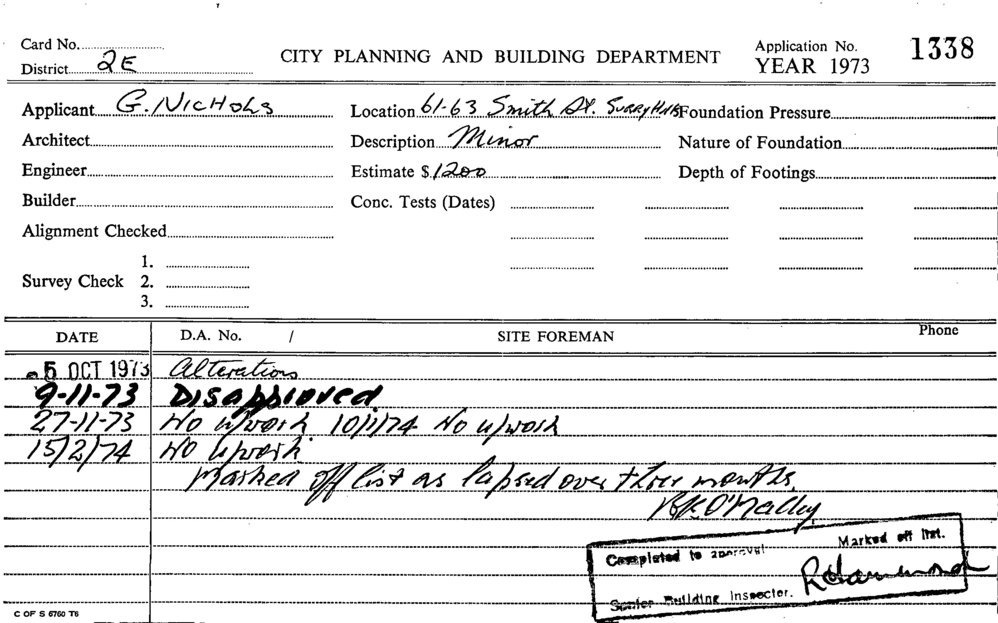 Card No.
District 2E
CITY PLANNING AND BUILDING DEPARTMENT
Application No. 1338
YEAR 1973
Applicant G. Nichols Location 61-63 Smith St. Surry Hills Foundation Pressure
Architect Description Minor Nature of Foundation
Engineer Estimate $ 1200 Depth of Footings
Builder Conc. Tests (Dates)
Alignment Checked
1.
Survey Check 2.
3.
DATE D.A. No. / SITE FOREMAN Phone
5 OCT 1973 Alterations
9-11-73 Disapproved
27-11-73 No u/work 10/1/74 No u/work
15/2/74 No u/work.
Marked off list as lapsed over three months.
O'Malley
Completed to approval Marked off list.
R Hammond
Senior Building Inspector.
C OF S 6760 T6